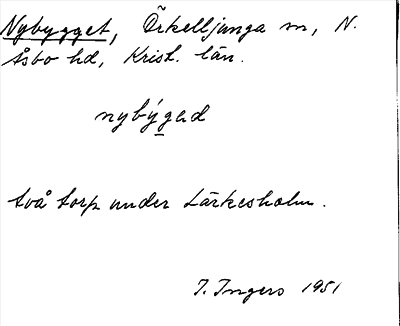 Nybygget, Örkelljunga sn, N.
Åsbo hd, Krist. län.
nybýgəd
två torp under Lärkesholm.
I. Ingers 1951